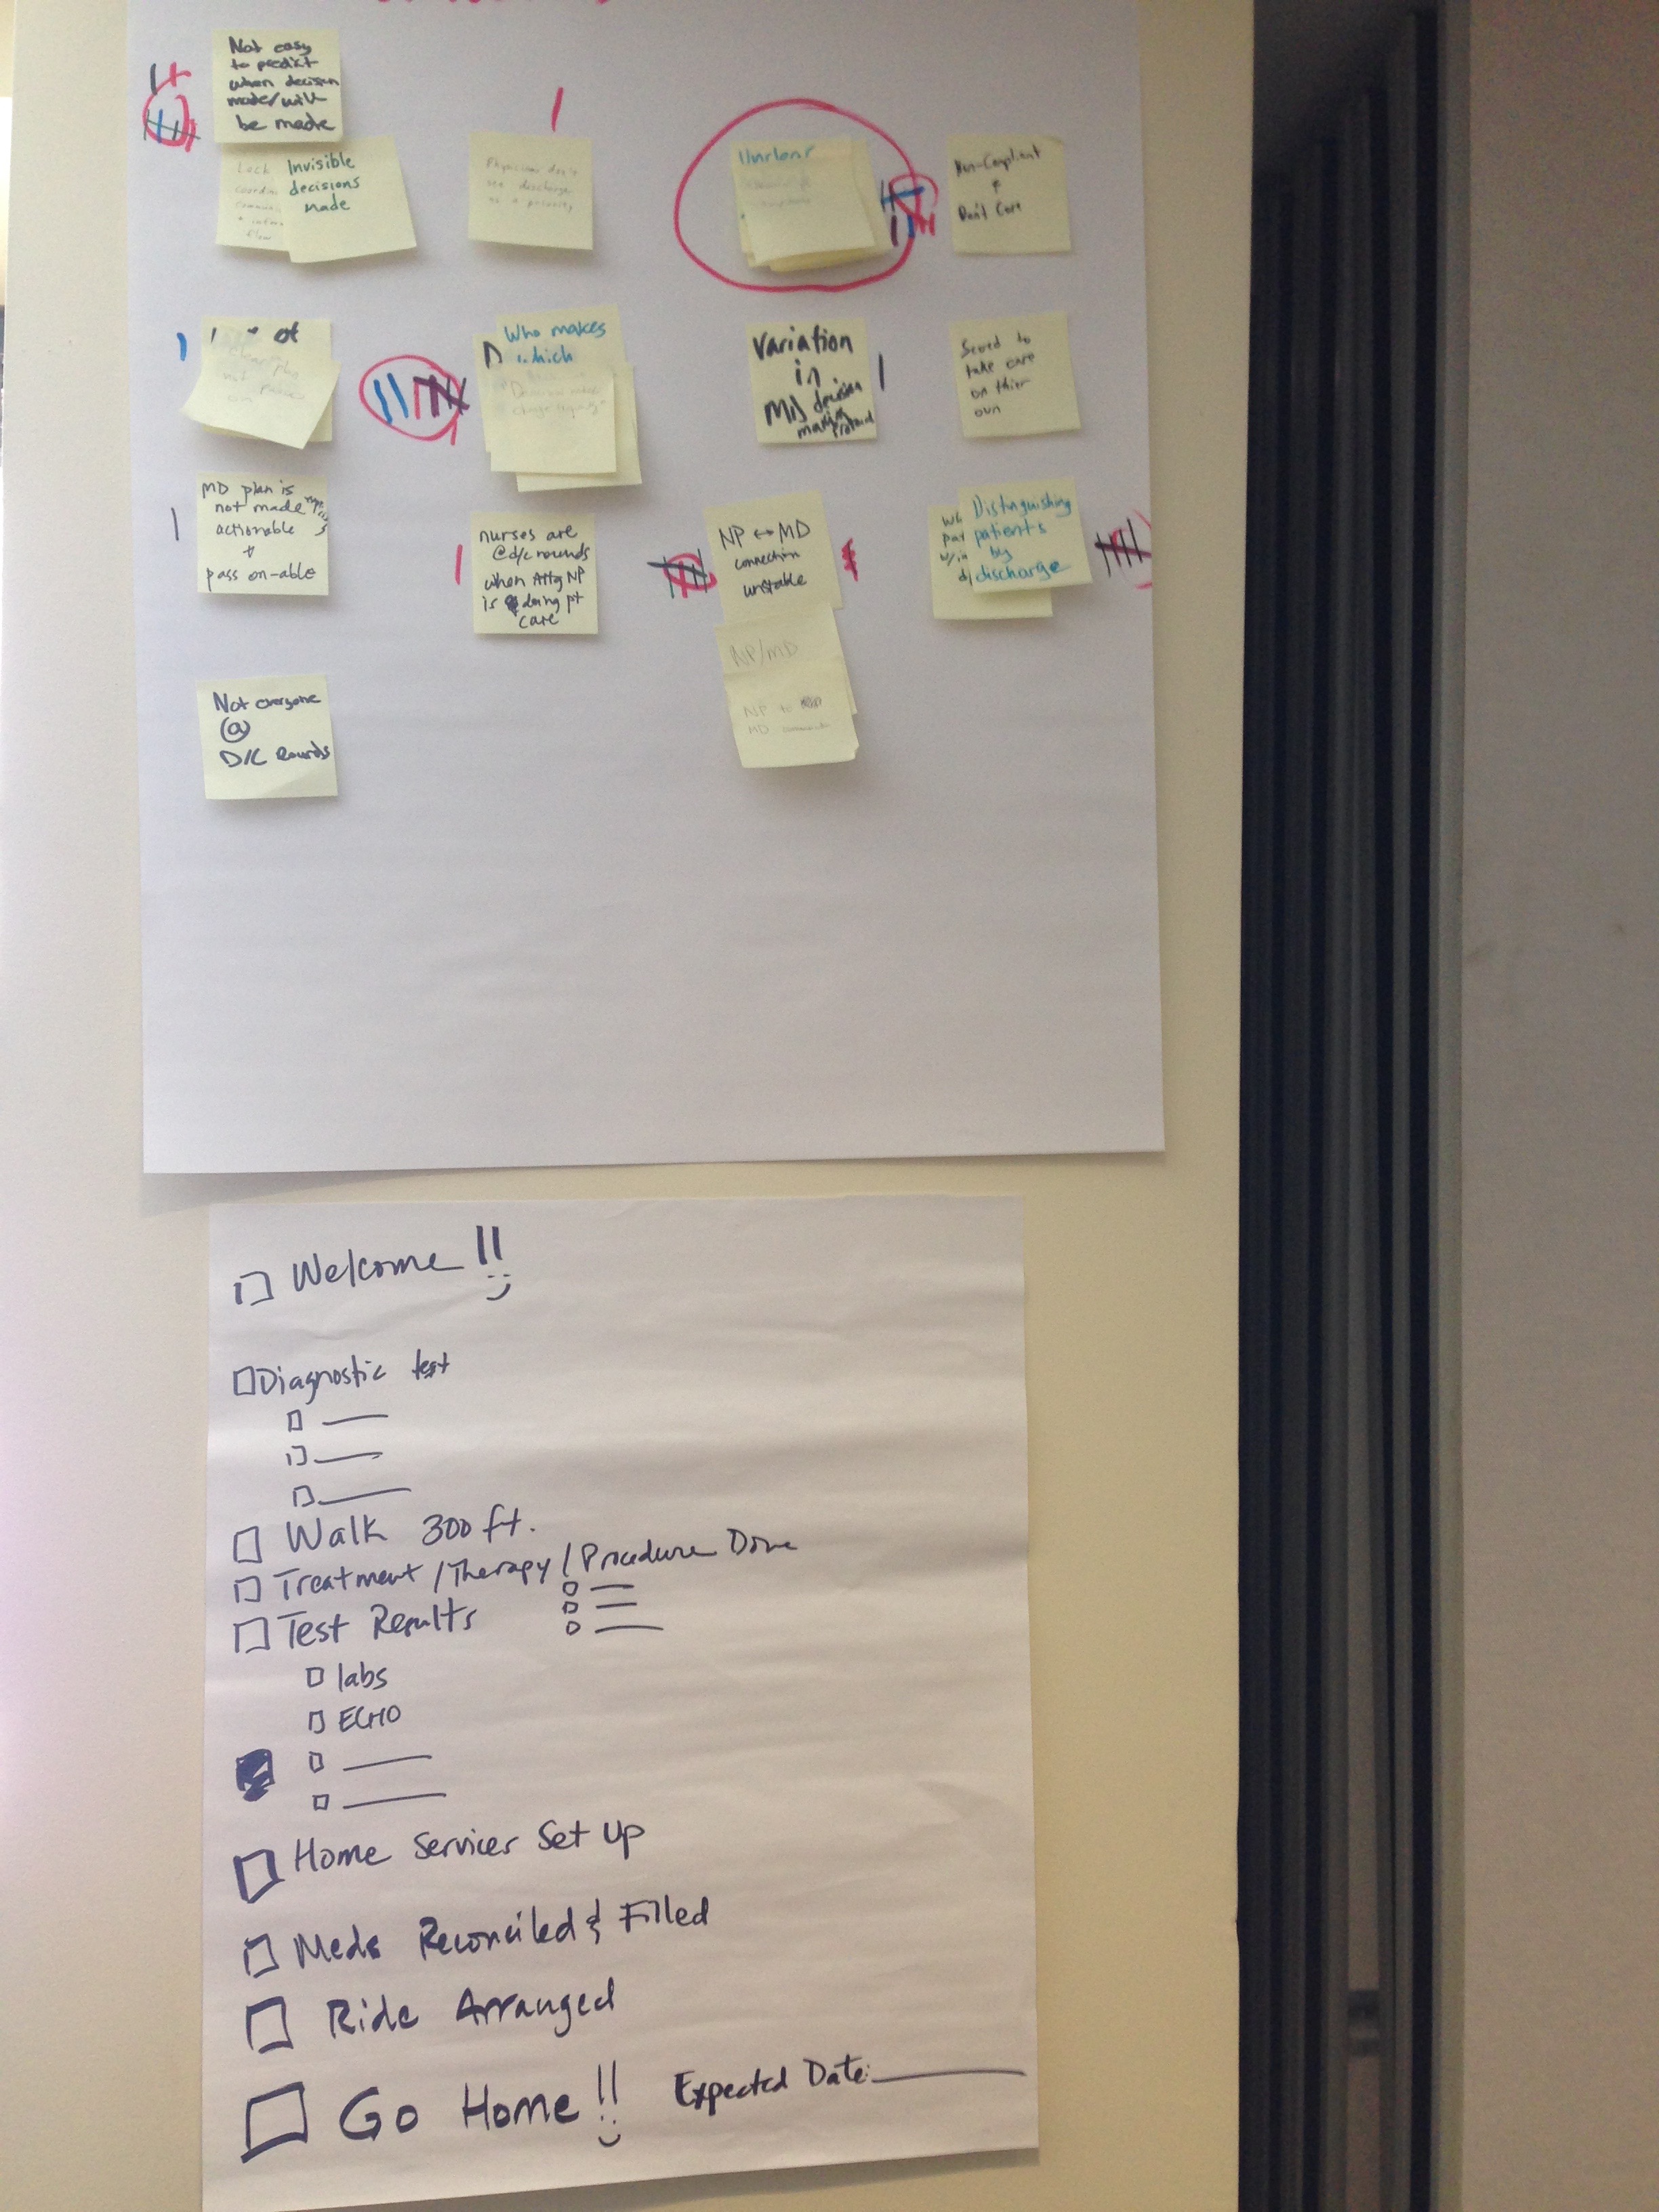 Not easy
to predict
when decision
made/will
be made
Lack
Invisible
decisions
made
Physicians don't
see discharge
as a priority
Unclear
Non-Compliant
&
Don't Care
of
Who makes
which
Decisions
change
Variation
in
MD decision
making
Scared to
take care
on thier
own
MD plan is
not made
actionable
&
pass on-able
nurses are
@d/c rounds
when Attg NP
is doing pt
care
NP ↔ MD
connection
unstable
NP/MD
NP to
MD
Distinguishing
patients
by
discharge
Not everyone
@
D/C Rounds
Welcome!!
Diagnostic test
Walk 300 ft.
Treatment/Therapy/Procedure Done
Test Results
labs
ECHO
Home Services Set Up
Meds Reconciled & Filled
Ride Arranged
Go Home!! Expected Date: